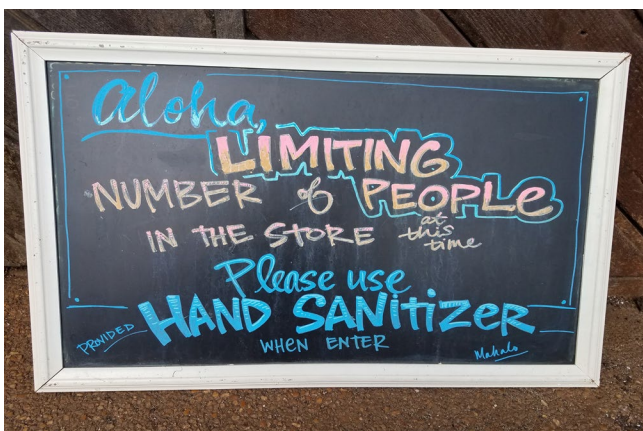 Aloha,
LIMITING
NUMBER of PEOPLE
IN THE STORE at this time
Please use
PROVIDED HAND SANITIZER
WHEN ENTER
Mahalo